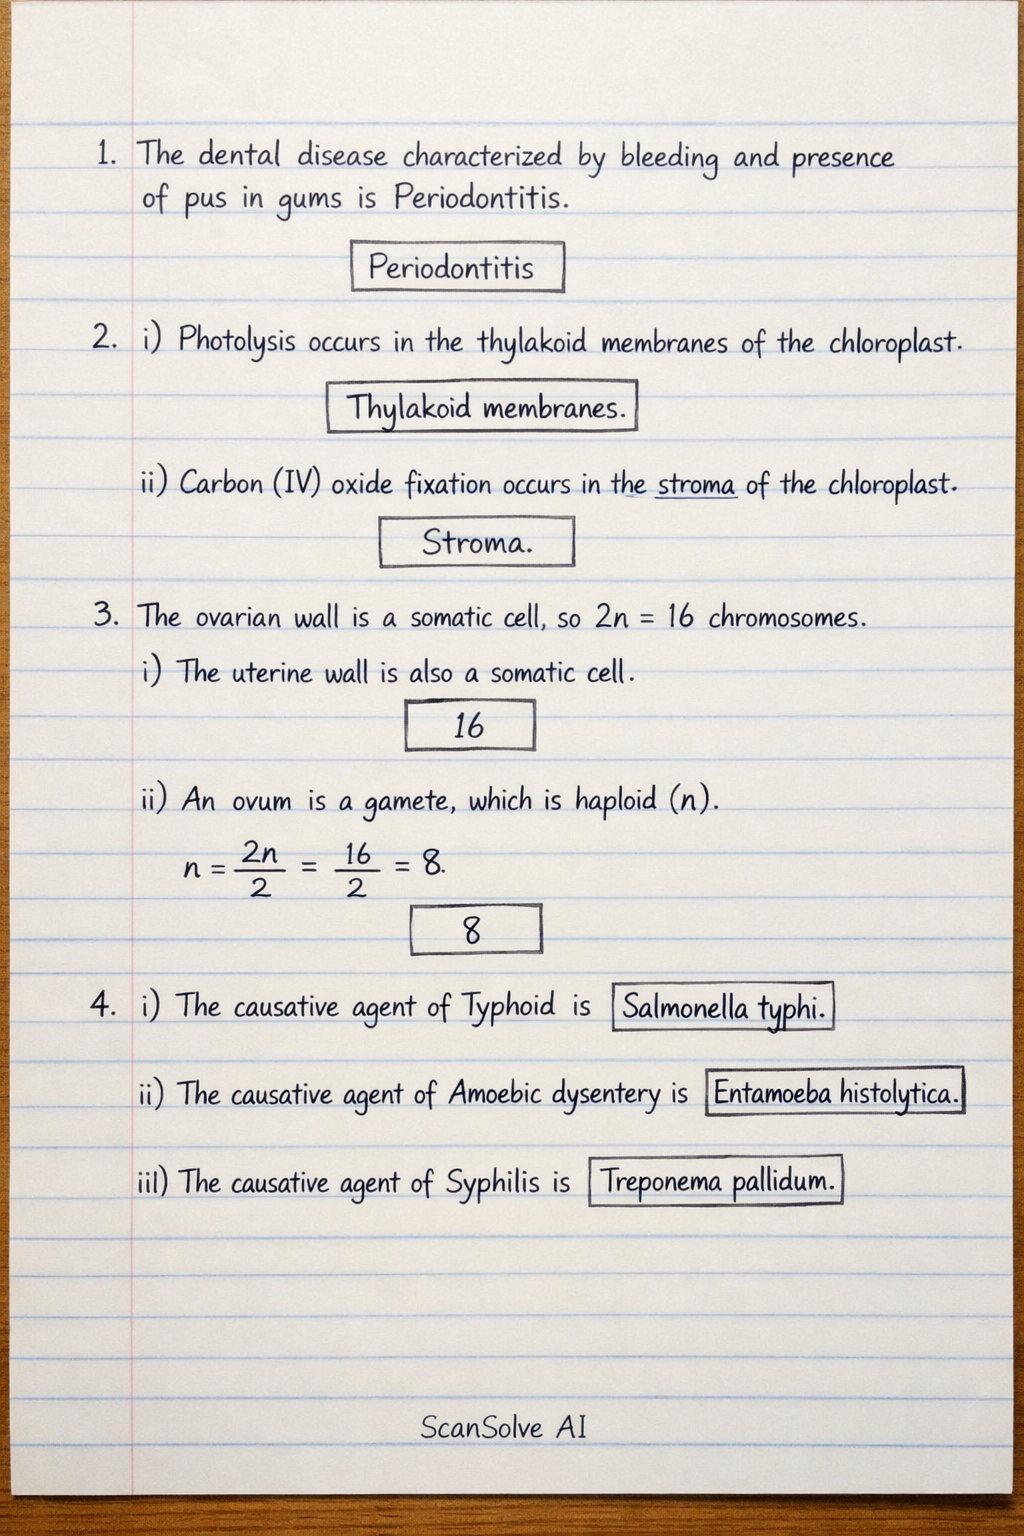 1. The dental disease characterized by bleeding and presence
of pus in gums is Periodontitis.
Periodontitis
2. i) Photolysis occurs in the thylakoid membranes of the chloroplast.
Thylakoid membranes.
ii) Carbon (IV) oxide fixation occurs in the stroma of the chloroplast.
Stroma.
3. The ovarian wall is a somatic cell, so 2n = 16 chromosomes.
i) The uterine wall is also a somatic cell.
16
ii) An ovum is a gamete, which is haploid (n).
n = 2n/2 = 16/2 = 8.
8
4. i) The causative agent of Typhoid is Salmonella typhi.
ii) The causative agent of Amoebic dysentery is Entamoeba histolytica.
iil) The causative agent of Syphilis is Treponema pallidum.
ScanSolve AI